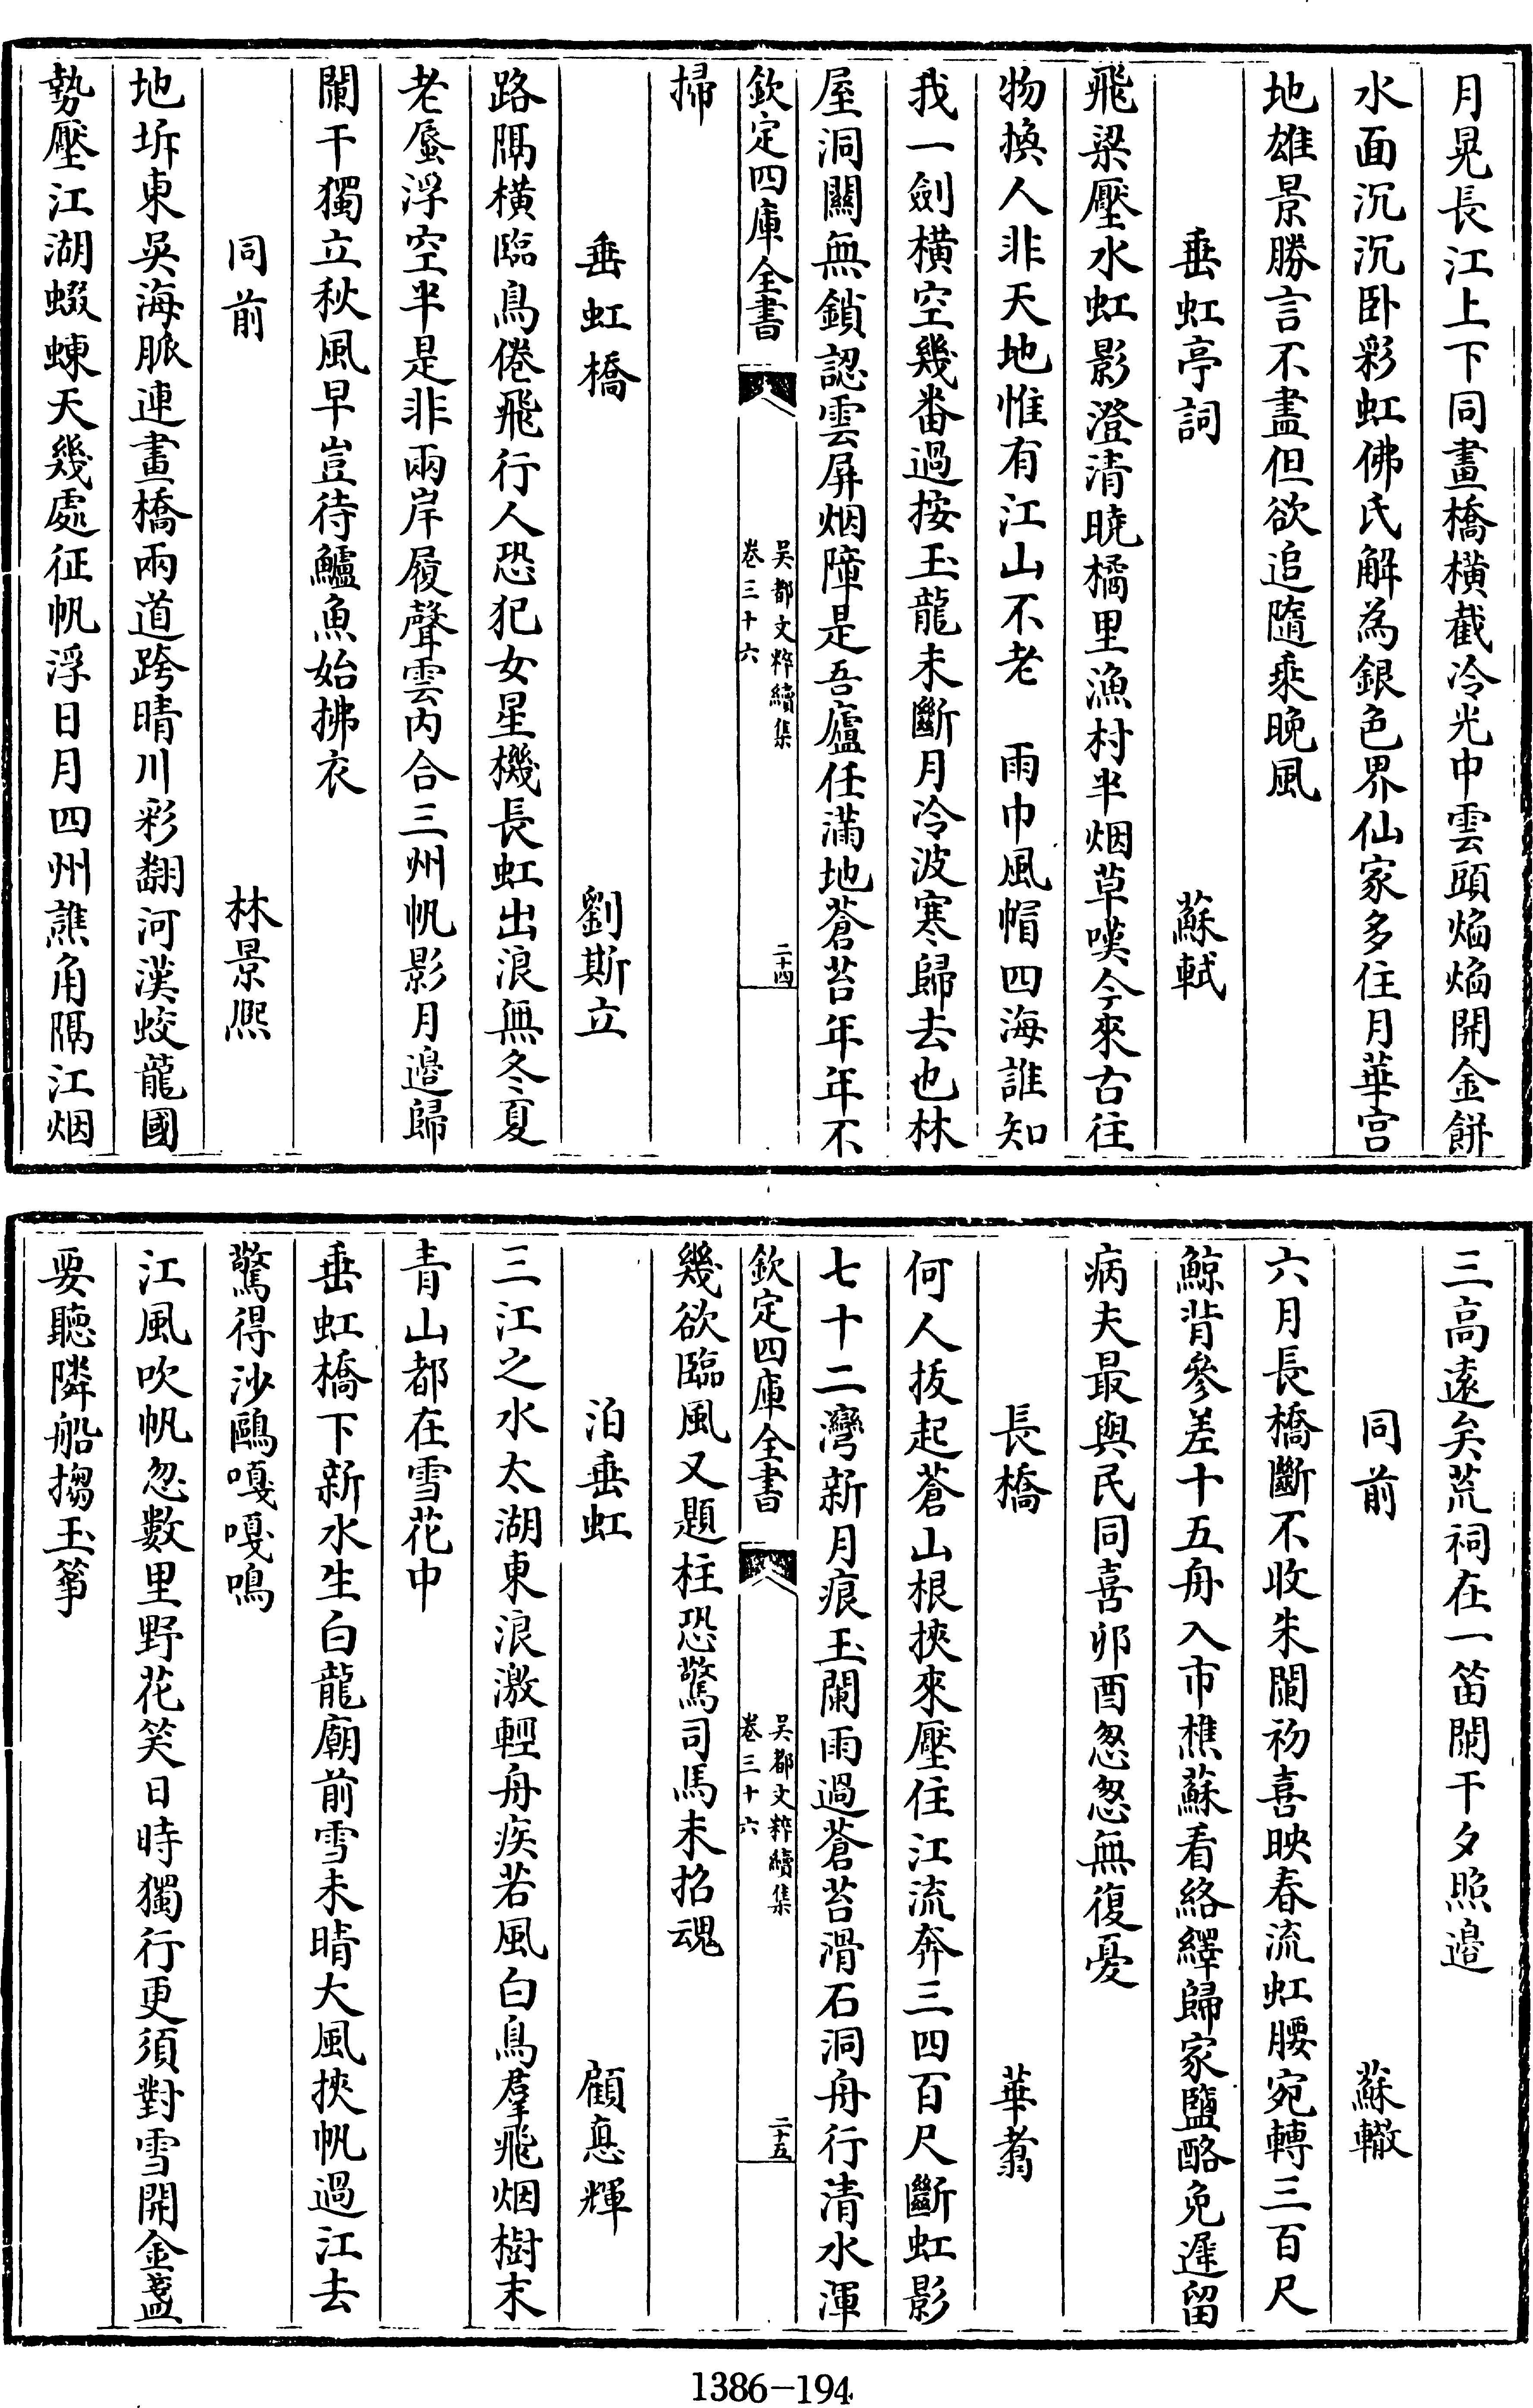 月晃長江上下同畫橋橫截冷光中雲頭焰焰開金餅
水面沉沉卧彩虹佛氏解為銀色界仙家多住月華宫
地雄景勝言不盡但欲追隨乘晚風
垂虹亭詞 蘇軾
飛梁壓水虹影澄清曉橘里漁村半烟草嘆今來古往
物換人非天地惟有江山不老 雨巾風帽四海誰知
我一劍橫空幾番過按玉龍未斷月冷波寒歸去也林
屋洞闗無鎖認雲屏烟障是吾廬任滿地蒼苔年年不
欽定四庫全書 吳都文粹續集 卷三十六 二十四
掃
垂虹橋 劉斯立
路隔橫臨鳥倦飛行人恐犯女星機長虹出浪無冬夏
老蜃浮空半是非兩岸履聲雲内合三州帆影月邉歸
闌干獨立秋風早豈待鱸魚始拂衣
同前 林景熈
地坼東吳海脈連畫橋兩道跨晴川彩翻河漢蛟龍國
勢壓江湖蝃蝀天幾處征帆浮日月四州譙角隔江烟
三高遠矣荒祠在一笛闌干夕照邉
同前 蘇轍
六月長橋斷不收朱闌初喜映春流虹腰宛轉三百尺
鯨背參差十五舟入市樵蘇看絡繹歸家鹽酪免遲留
病夫最與民同喜卯酉怱怱無復憂
長橋 華翥
何人拔起蒼山根挾來壓住江流奔三四百尺斷虹影
七十二灣新月痕玉闌雨過蒼苔滑石洞舟行清水渾
欽定四庫全書 吳都文粹續集 卷三十六 二十五
幾欲臨風又題柱恐驚司馬未招魂
泊垂虹 顧惪輝
三江之水太湖東浪激輕舟疾若風白鳥羣飛烟樹末
青山都在雪花中
垂虹橋下新水生白龍廟前雪未晴大風挾帆過江去
驚得沙鷗嘎嘎鳴
江風吹帆忽數里野花笑日時獨行更須對雪開金盞
要聽隣船搊玉箏
1386-194